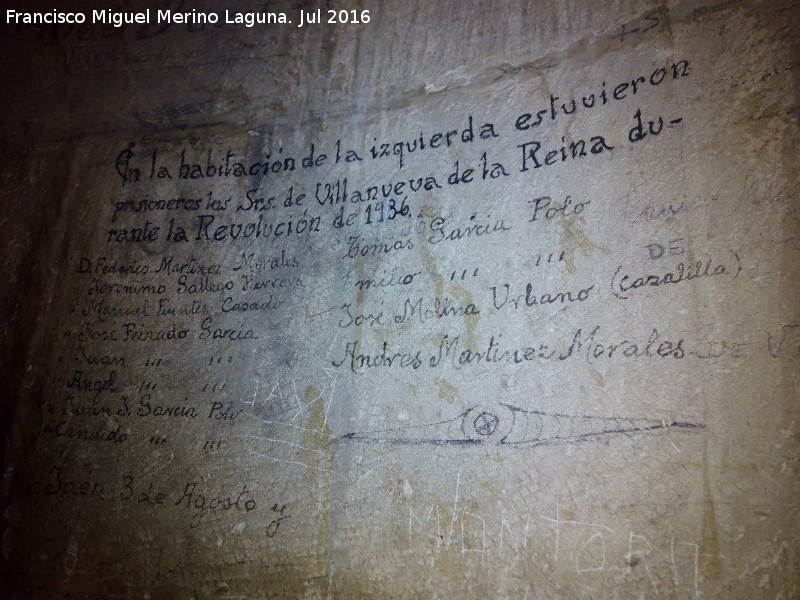 Francisco Miguel Merino Laguna. Jul 2016
En la habitación de la izquierda estuvieron
prisioneros los Srs. de Villanueva de la Reina du-
rante la Revolución de 1936.
D. Federico Martinez Morales
" Jeronimo Gallego Herrera
" Manuel Fuentes Casado
" José Peinado Garcia
" Juan ,,, ,,,
" Angel ,,, ,,,
" Juan J. Garcia Polo
" Candido ,,, ,,,
Tomas Garcia Polo
Emilio ,,, ,,,
DE
José Molina Urbano (cazalilla)
Andres Martinez Morales DE
Jaén 3 de Agosto y
MONTORO